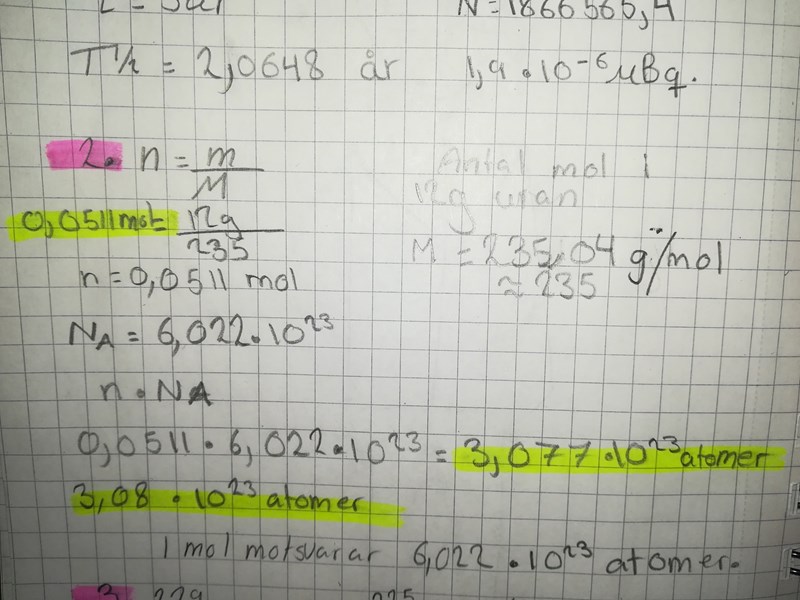 N = 1866565,4
T½ = 2,0648 år 1,9 • 10⁻⁶ μBq.
2. n = m/M
Antal mol i
12g uran
0,0511 mol = 12g/235
M = 235.04 g/mol
≈ 235
n = 0,0511 mol
NA = 6,022 • 10²³
n • NA
0,0511 • 6,022 • 10²³ = 3,077 • 10²³ atomer
3,08 • 10²³ atomer
1 mol motsvarar 6,022 • 10²³ atomer.
3